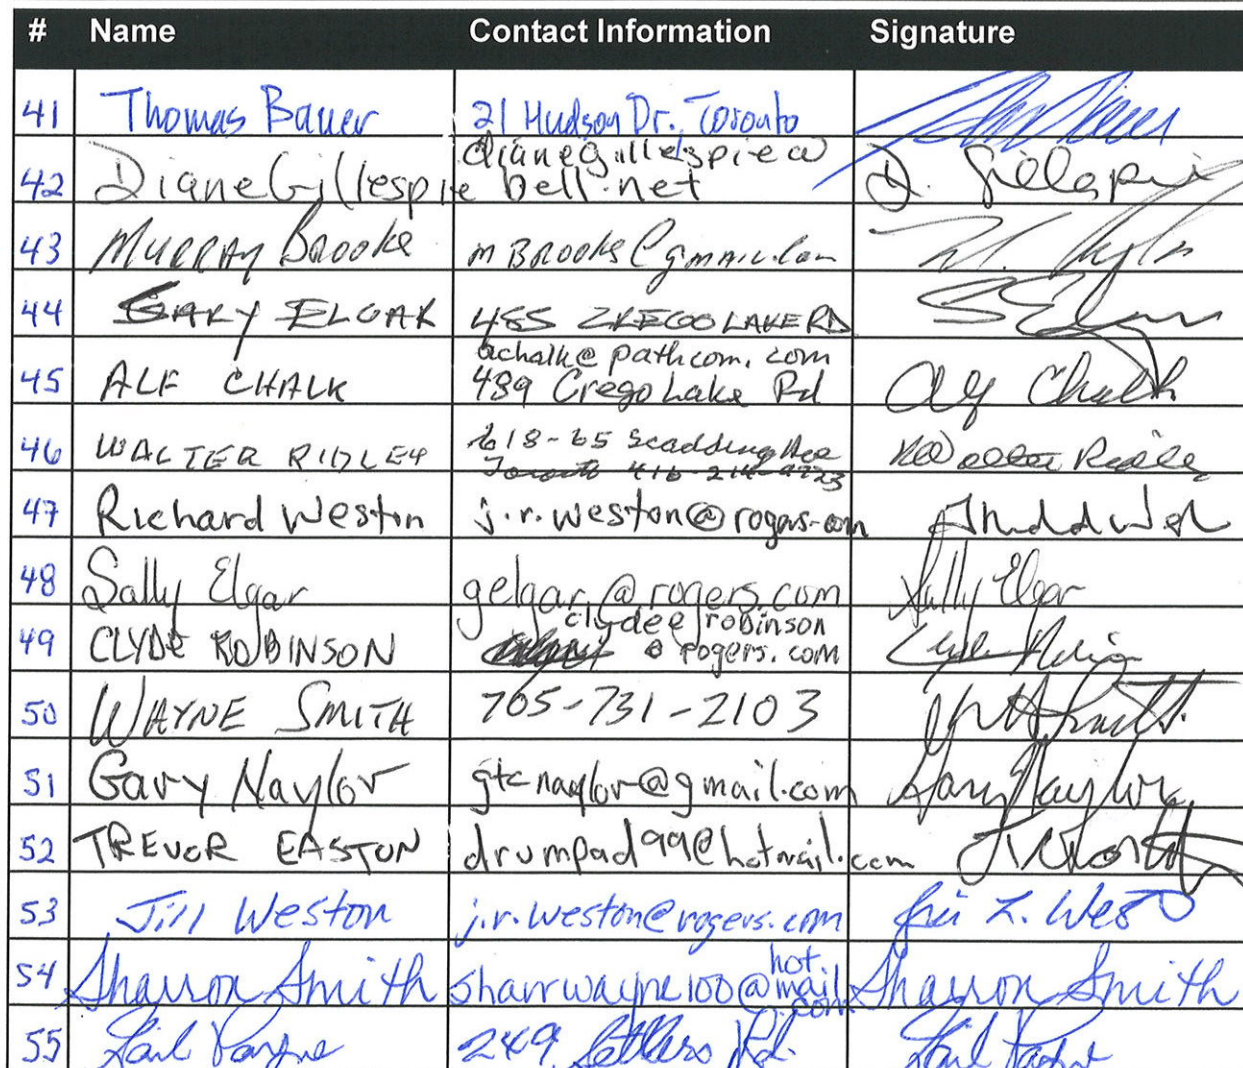 # Name Contact Information Signature
41 Thomas Bauer 21 Hudson Dr. Toronto
dianegillespie@
42 Diane Gillespie bell.net D. Gillespie
43 MURRAY BROOKE mBROOKE@gmail.com
44 GARY ELGAR 485 CREGO LAKE RD
achalk@pathcom.com
45 ALF CHALK 489 Crego Lake Rd Alf Chalk
618-65 Scadding Ave
46 WALTER RIDLEY Toronto Walter Ridley
47 Richard Weston j.r.weston@rogers.com
48 Sally Elgar gelgar@rogers.com Sally Elgar
clydeejrobinson
49 CLYDE ROBINSON @ rogers.com
50 WAYNE SMITH 705-731-2103
51 Gary Naylor gtcnaylor@gmail.com Gary Naylor
52 TREVOR EASTON drumpad99@hotmail.com
hot
53 Jill Weston j.r.weston@rogers.com Jill L. West
54 Sharron Smith sharrwayne100@mail Sharron Smith
.com
55 Gail Payne 249 Settlers Rd. Gail Payne